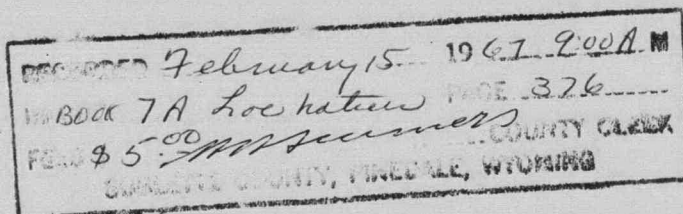 RECORDED February 15 1967 9:00 A M
IN BOOK 7A PAGE 326
FEES $ 5.00 COUNTY CLERK
SUBLETTE COUNTY, PINEDALE, WYOMING